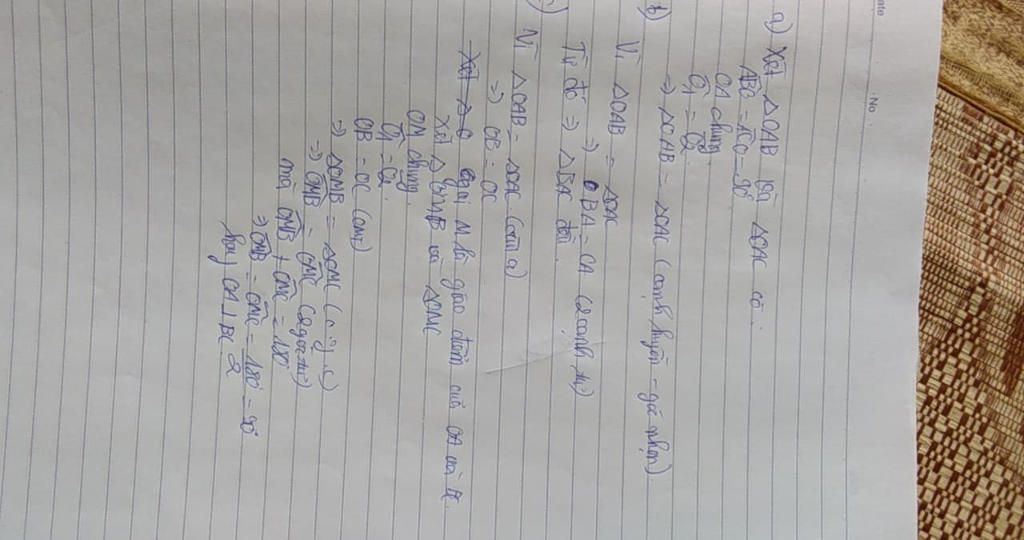 No.
a) Xét △OAB và △OAC có:
ABO = ACO = 90°
OA chung
Ô1 = Ô2
=> △OAB = △OAC (cạnh huyền - góc nhọn)
b) Vì △OAB = △OAC
=> BA = CA (2 cạnh
Từ đó => △BAC
Vì △OAB = △OAC (câu a)
=> OB = OC
Xét △ O Gọi M là giao điểm của OA và BC.
Xét △OMB và △OMC
OM chung
Ô1 = Ô2
OB = OC (cmt)
=> △OMB = △OMC (c.g.c)
=> OMB = OMC (2 góc
mà OMB + OMC = 180°
=> OMB = OMC = 180°/2 = 90°
hay OA ⊥ BC